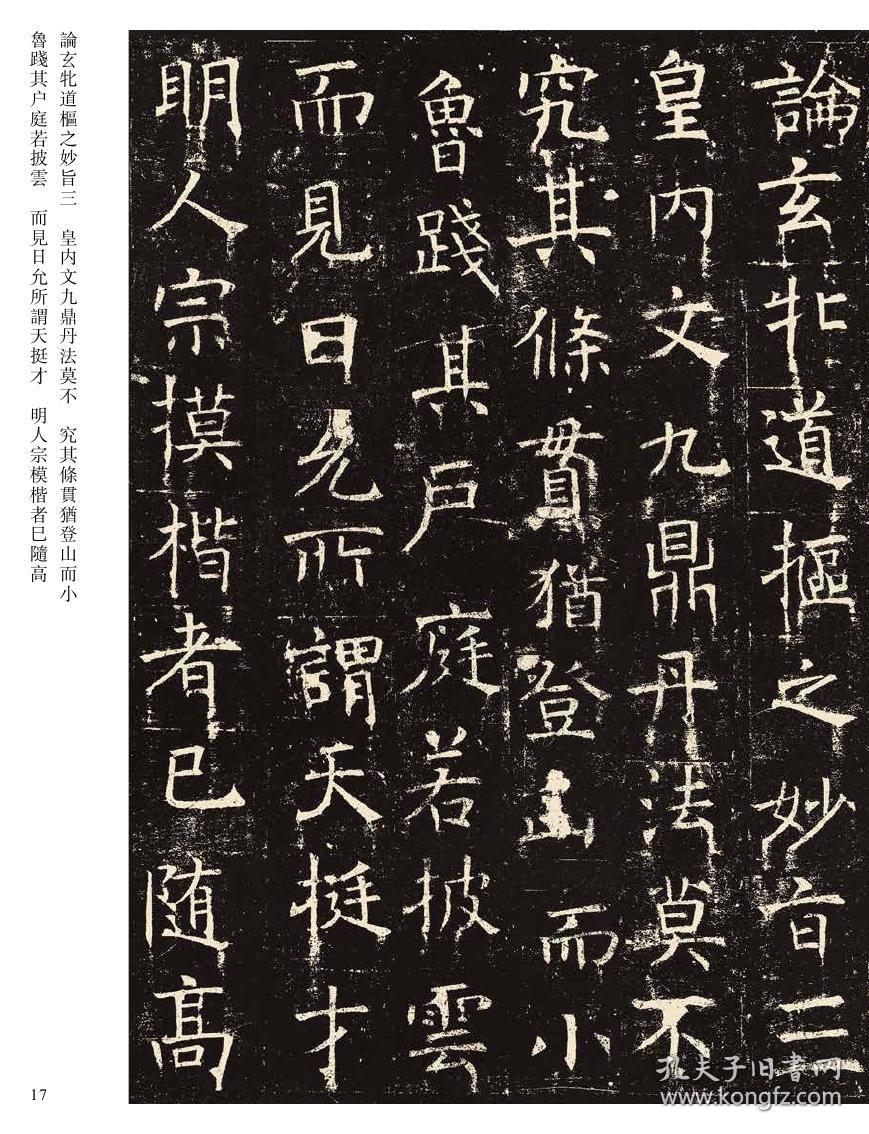 論玄牝道樞之妙旨三
皇内文九鼎丹法莫不
究其條貫猶登山而小
魯踐其户庭若披雲
而見日允所謂天挺才
明人宗摸楷者已随高
論玄牝道樞之妙旨三　皇内文九鼎丹法莫不　究其條貫猶登山而小
魯踐其户庭若披雲　而見日允所謂天挺才　明人宗模楷者巳隨高
17
孔夫子旧书网
www.kongfz.com